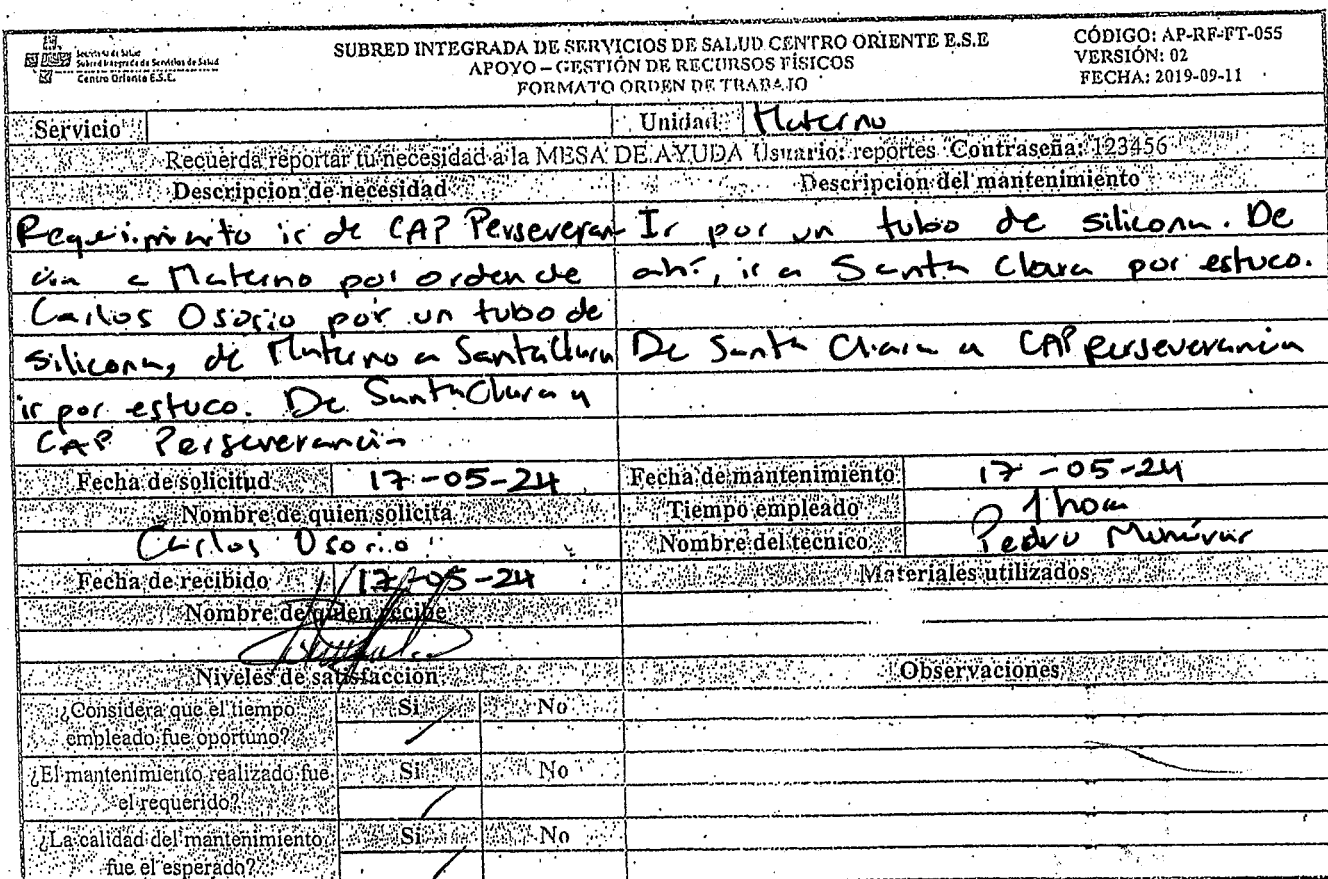 Secretaría de Salud
Subred Integrada de Servicios de Salud
Centro Oriente E.S.E.
SUBRED INTEGRADA DE SERVICIOS DE SALUD CENTRO ORIENTE E.S.E
APOYO – GESTIÓN DE RECURSOS FÍSICOS
FORMATO ORDEN DE TRABAJO
CÓDIGO: AP-RF-FT-055
VERSIÓN: 02
FECHA: 2019-09-11
Servicio
Unidad Materno
Recuerda reportar tu necesidad a la MESA DE AYUDA Usuario: reportes Contraseña: 123456
Descripcion de necesidad
Requerimiento ir de CAP Perseveran
cia a Materno por orden de
Carlos Osorio por un tubo de
silicona, de Materno a Santa Clara
ir por estuco. De Santa Clara a
CAP Perseverancia
Descripcion del mantenimiento
Ir por un tubo de silicona. De
ahí, ir a Santa Clara por estuco.
De Santa Clara a CAP perseverancia
Fecha de solicitud 17-05-24
Fecha de mantenimiento 17-05-24
Nombre de quien solicita
Carlos Osorio
Tiempo empleado 1 hora
Nombre del técnico Pedro Munévar
Fecha de recibido 17-05-24
Materiales utilizados
Nombre de quien recibe
Niveles de satisfacción
Observaciones
¿Considera que el tiempo
empleado fue oportuno?
Si No
¿El mantenimiento realizado fue
el requerido?
Si No
¿La calidad del mantenimiento
fue el esperado?
Si No